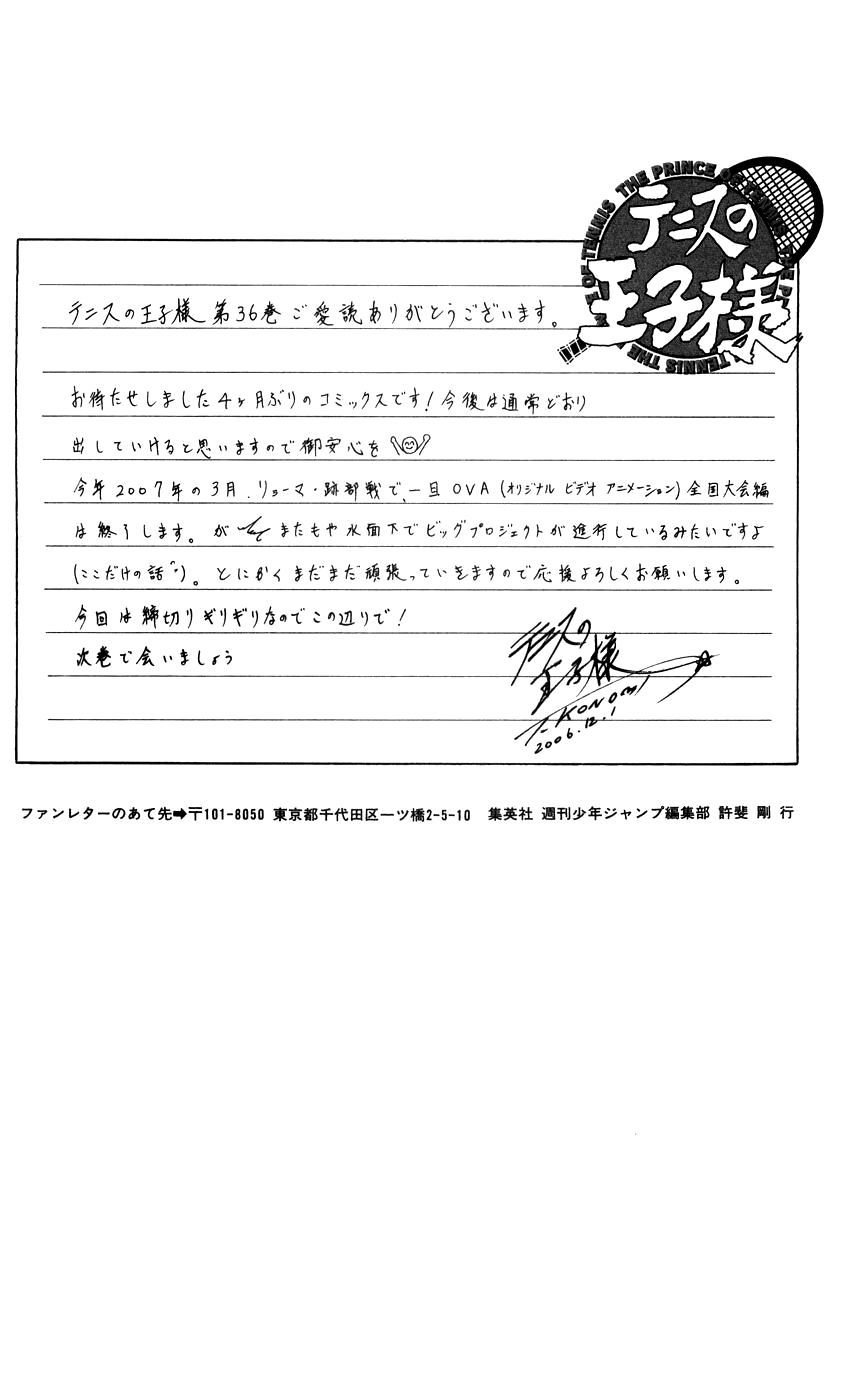 THE PRINCE OF TENNIS THE PRINCE OF TENNIS THE
テニスの
王子様
テニスの王子様 第36巻 ご愛読ありがとうございます。
お待たせしました4ヶ月ぶりのコミックスです!今後は通常どおり
出していけると思いますので御安心を
今年2007年の3月、リョーマ・跡部戦で、一旦OVA(オリジナル ビデオ アニメーション)全国大会編
は終了します。が またもや水面下でビッグプロジェクトが進行しているみたいですよ
(ここだけの話)。とにかくまだまだ頑張っていきますので応援よろしくお願いします。
今回は締切りギリギリなのでこの辺りで!
次巻で会いましょう
テニスの
王子様
T-KONOMI
2006.12.1
ファンレターのあて先➡〒101-8050 東京都千代田区一ツ橋2-5-10 集英社 週刊少年ジャンプ編集部 許斐 剛 行